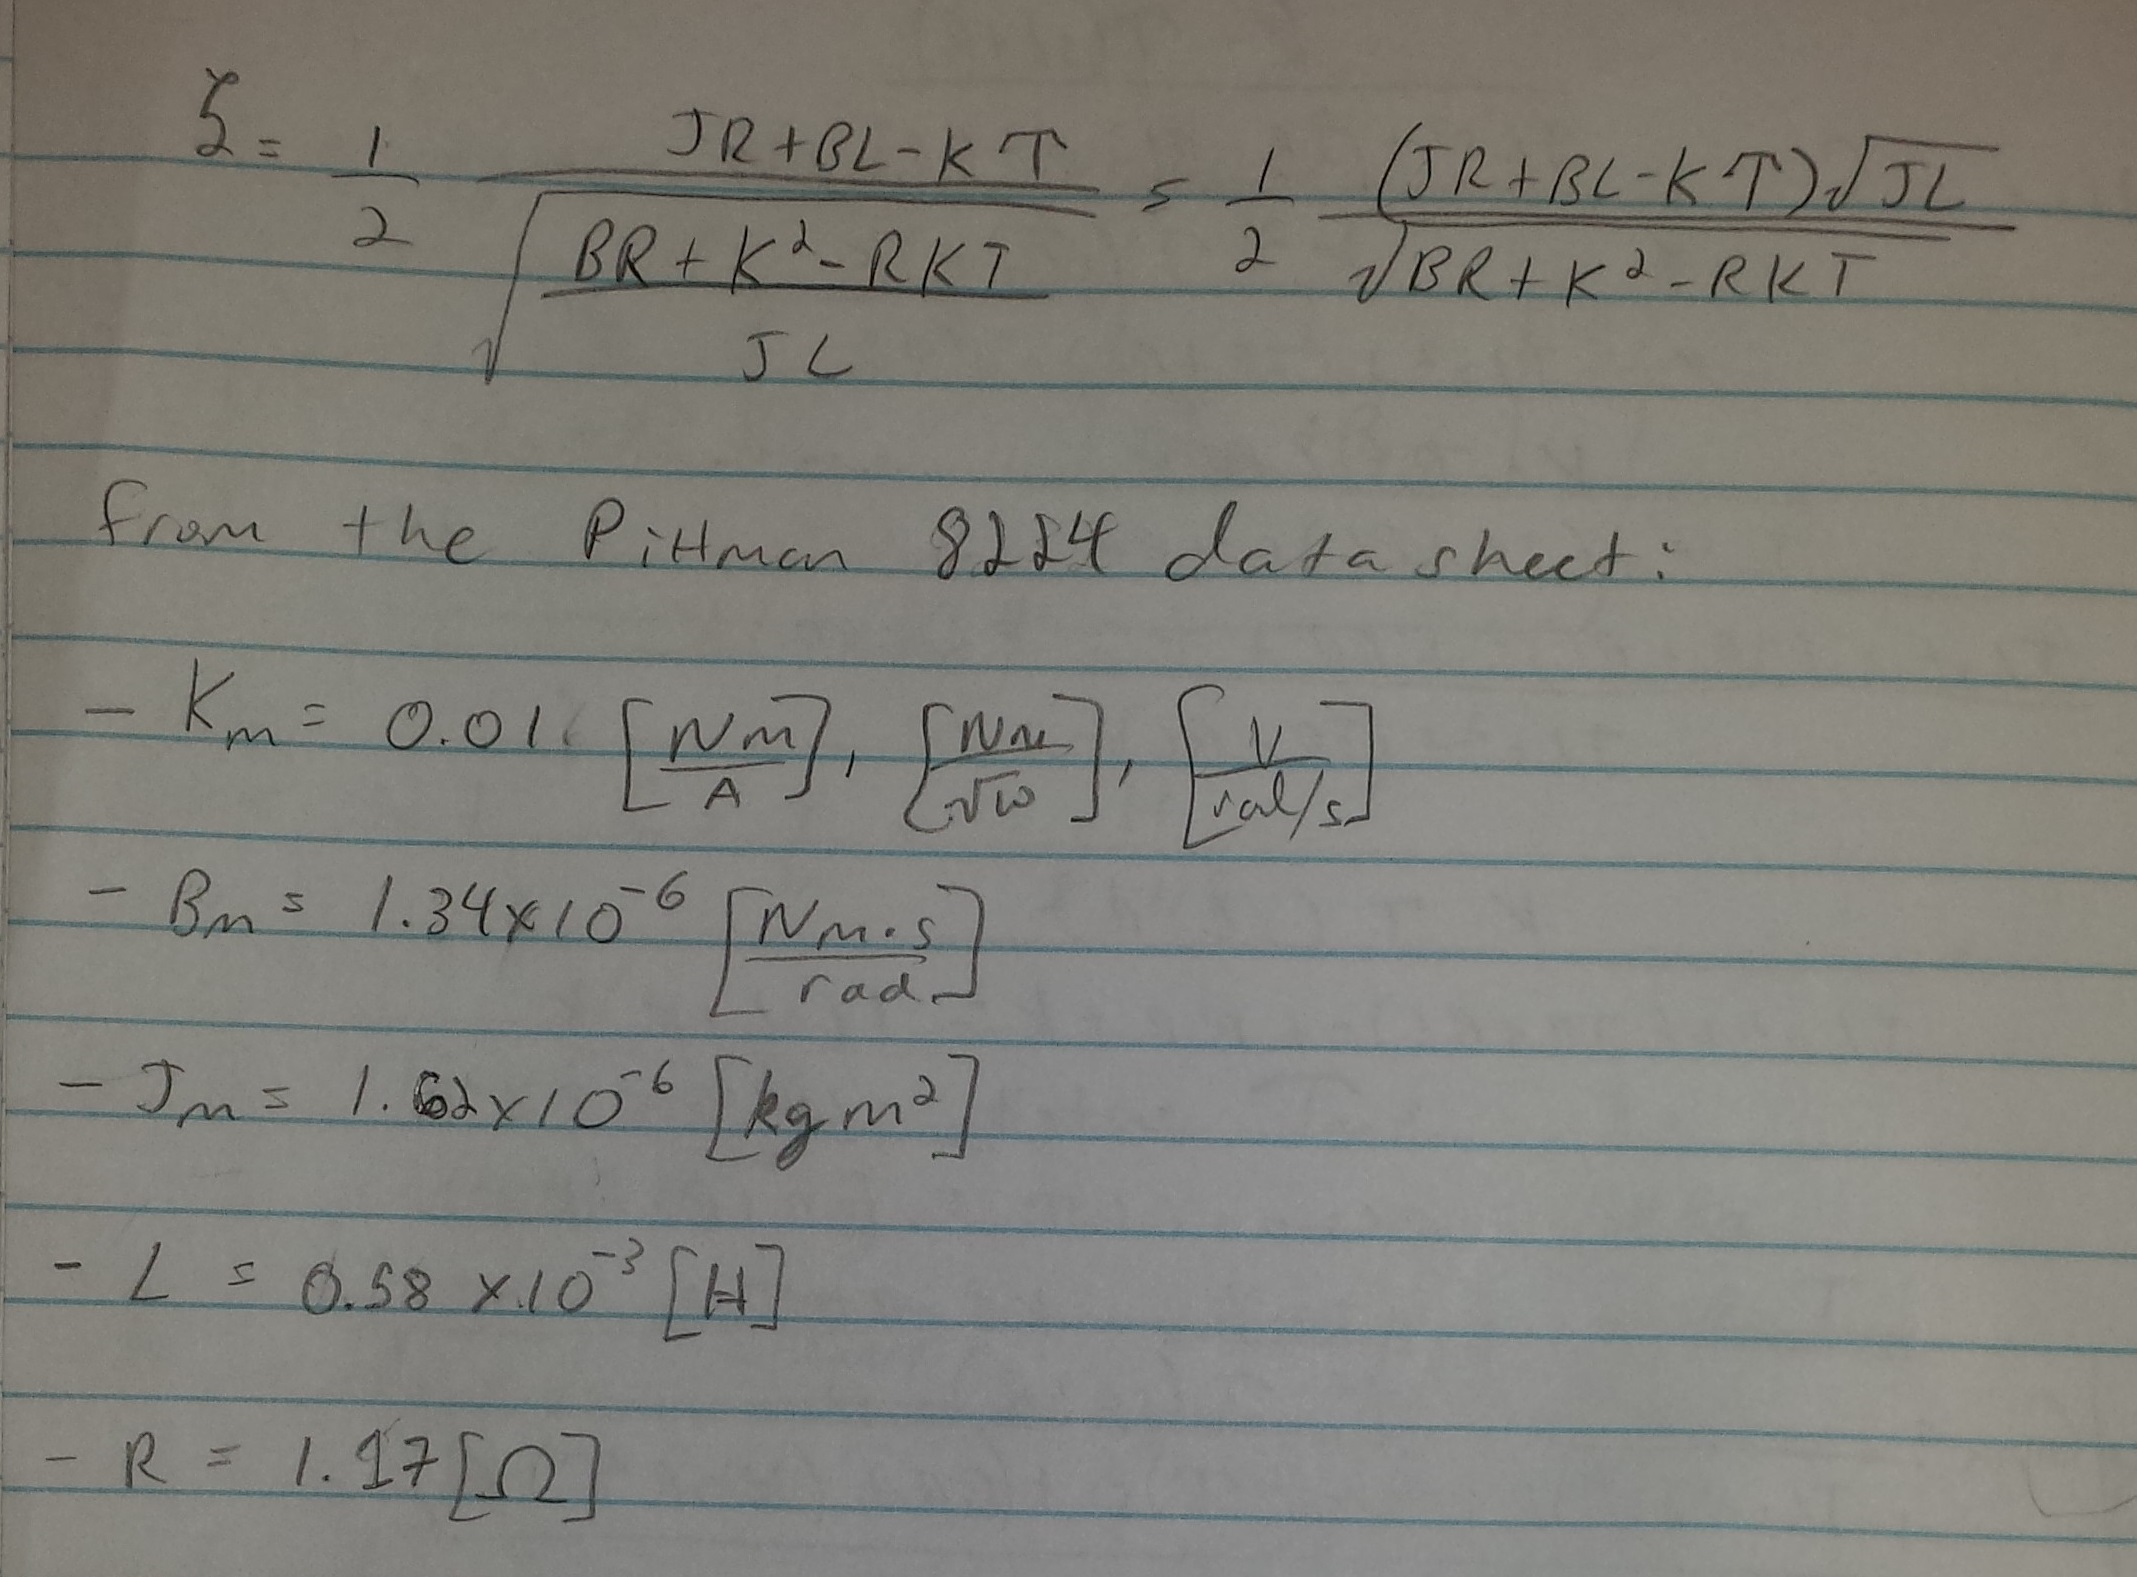 ζ = 1/2 (JR+BL-KT)/√((BR+K²-RKT)/(JL)) = 1/2 ((JR+BL-KT)√(JL))/√(BR+K²-RKT)
from the Pittman 8224 data sheet:
- Km = 0.01 [Nm/A], [Nm/√W], [V/rad/s]
- Bm = 1.34×10⁻⁶ [Nm·s/rad]
- Jm = 1.62×10⁻⁶ [kgm²]
- L = 0.58 ×10⁻³ [H]
- R = 1.17 [Ω]